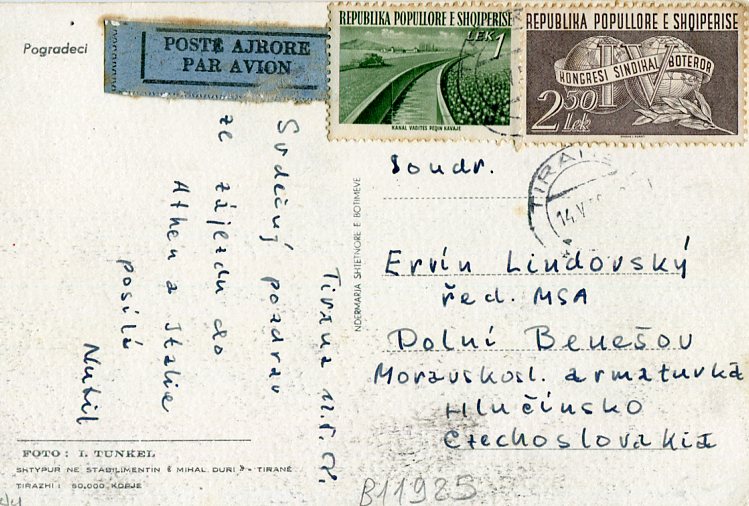 Pogradeci
POSTE AJRORE
PAR AVION
REPUBLIKA POPULLORE E SHQIPERISE
LEK. 1
KANAL VADITES PEQIN KAVAJE
REPUBLIKA POPULLORE E SHQIPERISE
KONGRESI SINDIKAL BOTEROR
IV
2 50
Lek
TIRANE
14.V
Tirana
Srdečný pozdrav
ze zájezdu do
Athen a Italie
posílá
NDERMARJA SHTETNORE E BOTIMEVE
Soudr.
Ervín Lindovský
řed. MSA
Dolní Benešov
Moravskosl. armaturka
Hlučínsko
Czechoslovakia
FOTO : I. TUNKEL
SHTYPUR NE STABILIMENTIN « MIHAL DURI » - TIRANË
TIRAZHI : 50.000 KOPJE
B11925